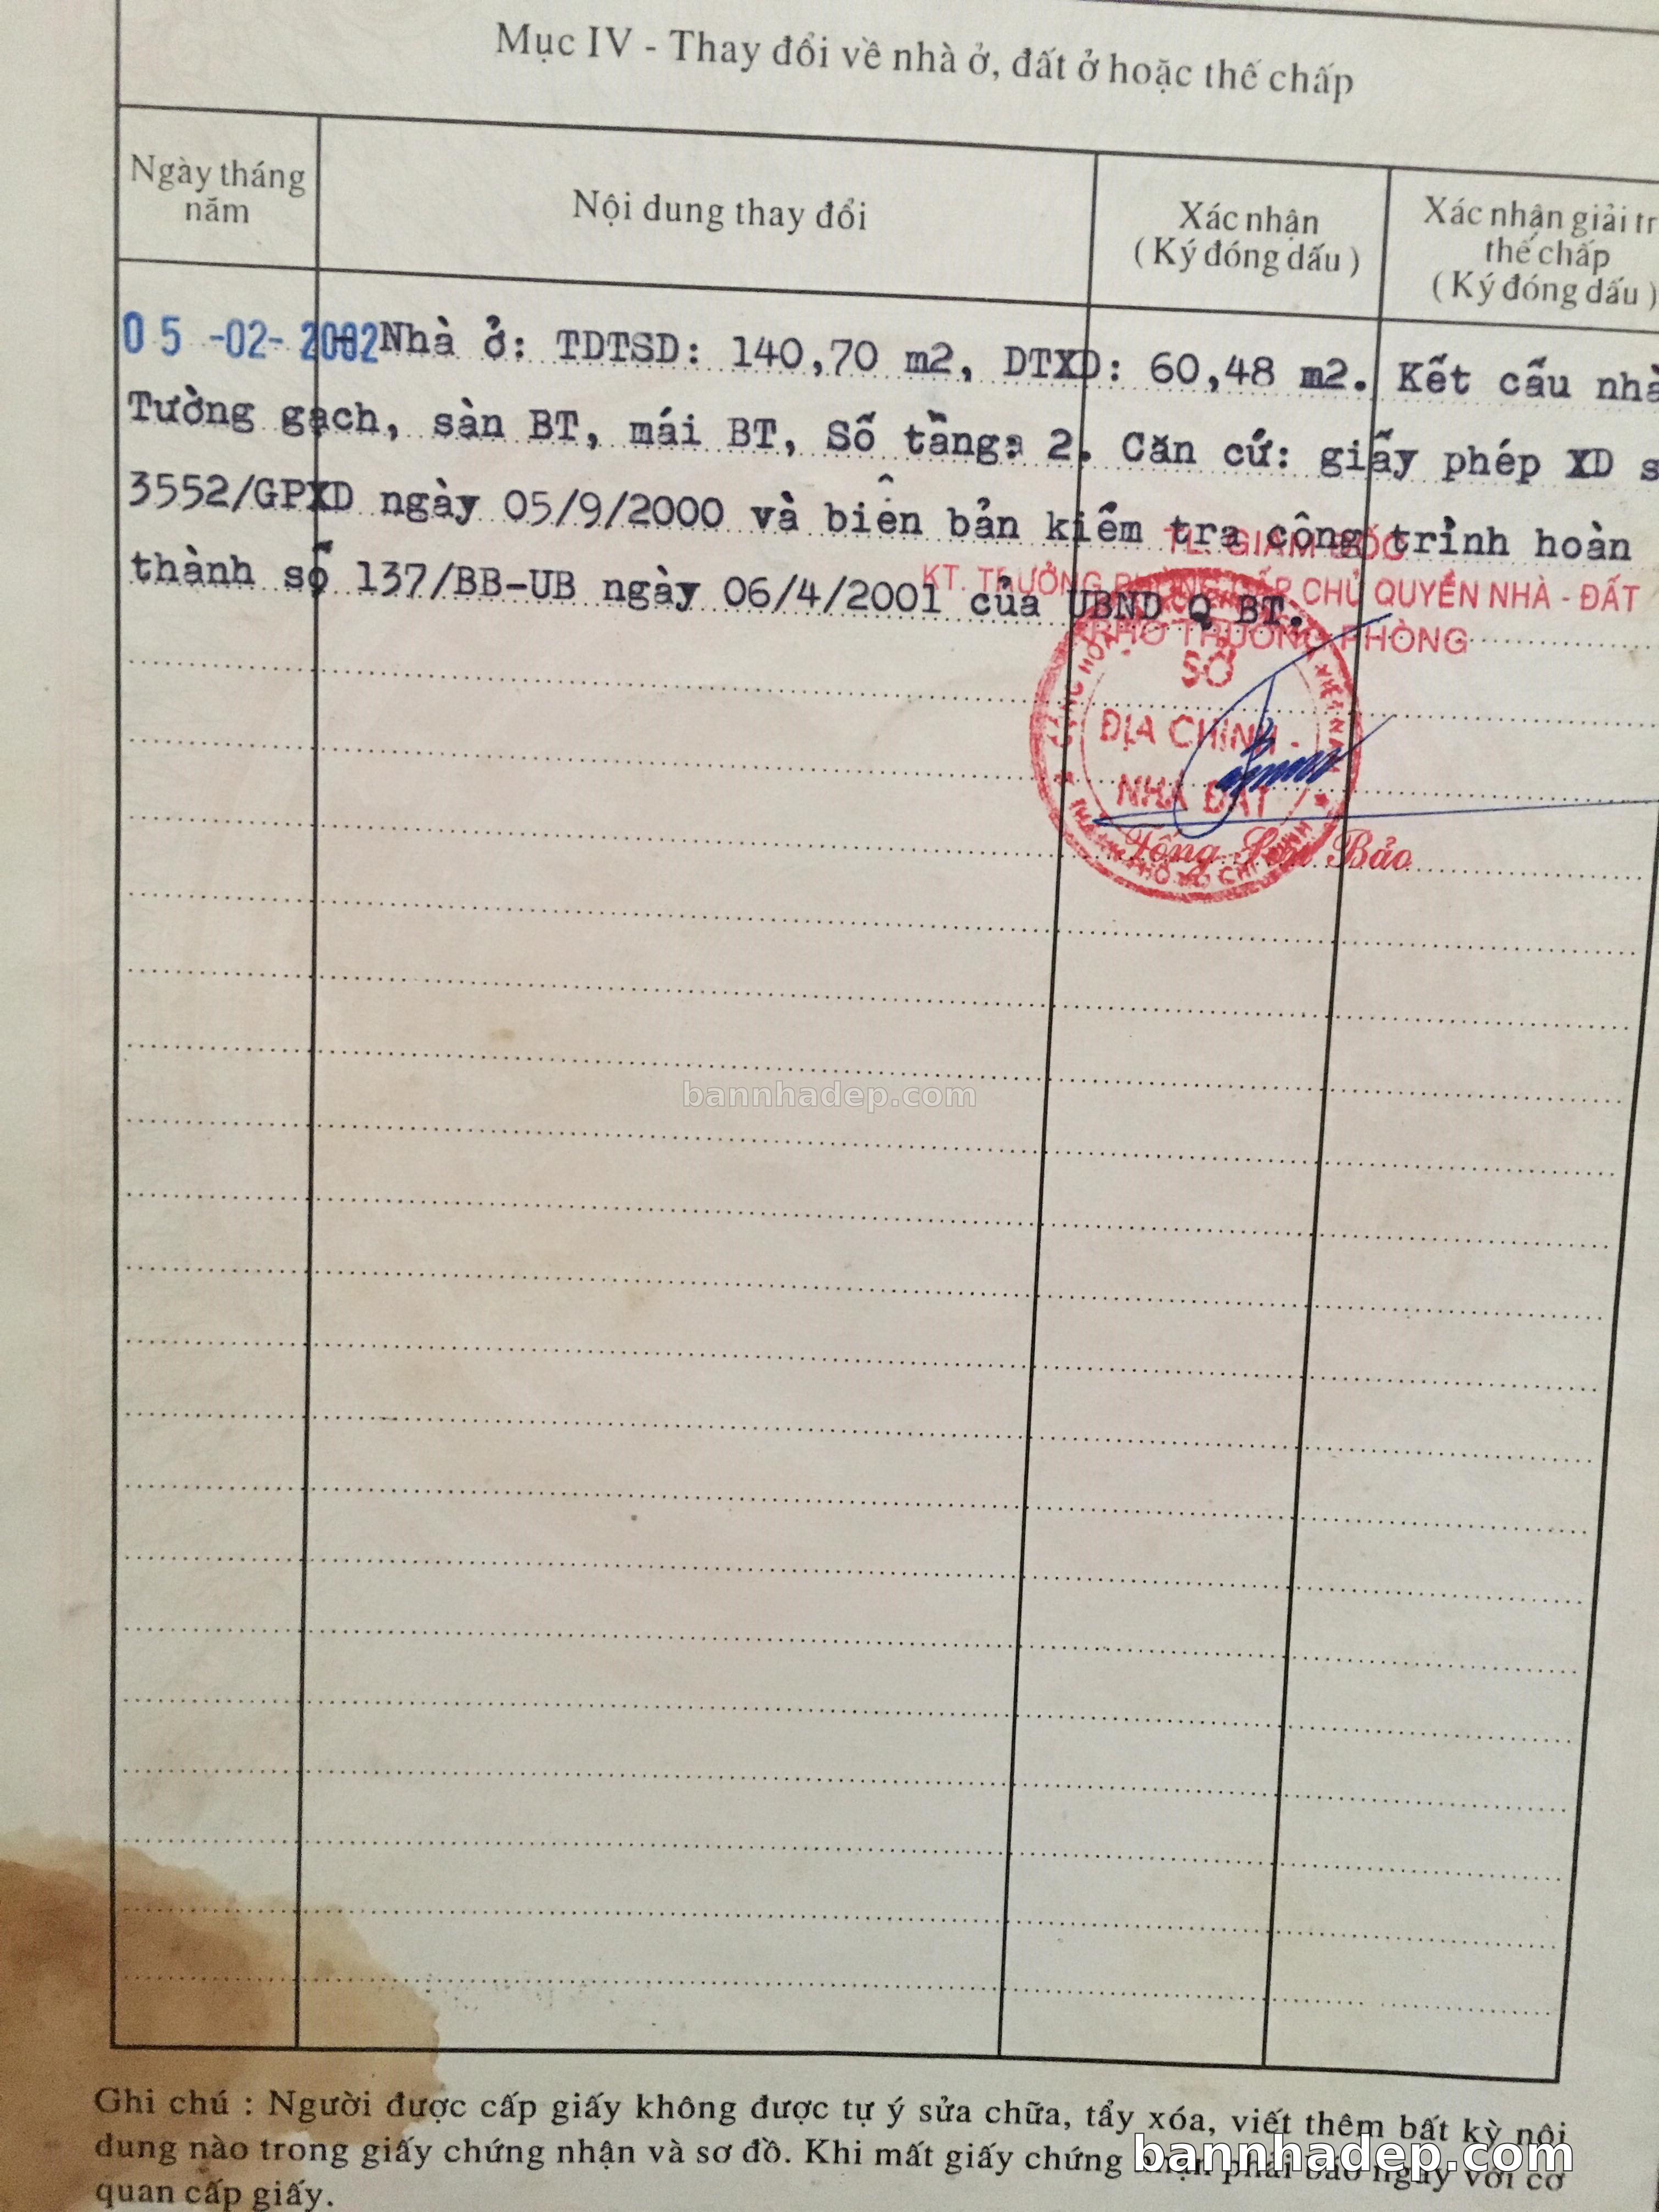 Mục IV - Thay đổi về nhà ở, đất ở hoặc thế chấp
Ngày tháng năm
Nội dung thay đổi
Xác nhận
( Ký đóng dấu )
Xác nhận giải tr
thế chấp
( Ký đóng dấu )
05 -02- 2002 - Nhà ở: TDTSD: 140,70 m2, DTXD: 60,48 m2. Kết cấu nhà
Tường gạch, sàn BT, mái BT, Số tầng: 2. Căn cứ: giấy phép XD s
3552/GPXD ngày 05/9/2000 và biên bản kiểm tra công trình hoàn
thành số 137/BB-UB ngày 06/4/2001 của UBND Q BT.
TL. GIÁM ĐỐC
KT. TRƯỞNG PHÒNG CẤP CHỦ QUYỀN NHÀ - ĐẤT
PHÓ TRƯỞNG PHÒNG
SỞ
ĐỊA CHÍNH -
NHÀ ĐẤT
Bảo
bannhadep.com
Ghi chú : Người được cấp giấy không được tự ý sửa chữa, tẩy xóa, viết thêm bất kỳ nội
dung nào trong giấy chứng nhận và sơ đồ. Khi mất giấy chứng nhận phải báo ngay với cơ
quan cấp giấy.
bannhadep.com